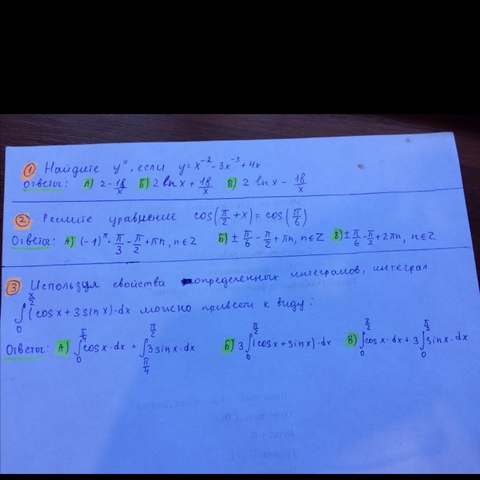 ① Найдите y", если y = x⁻² - 3x⁻³ + 4x
ответы: А) 2 - 18/x Б) 2 ln x + 18/x В) 2 ln x - 18/x
② Решите уравнение cos(π/2 + x) = cos(π/6)
Ответа: А) (-1)ⁿ · π/3 - π/2 + πn, n ∈ Z Б) ± π/6 - π/2 + πn, n ∈ Z В) ± π/6 - π/2 + 2πn, n ∈ Z
③ Используя свойства определенных интегралов, интеграл
∫₀^(π/2) (cos x + 3 sin x) · dx можно привести к виду:
Ответы: А) ∫₀^(π/4) cos x · dx + ∫_(π/4)^(π/2) 3 sin x · dx Б) 3 ∫₀^(π/2) (cos x + sin x) · dx В) ∫₀^(π/2) cos x · dx + 3 ∫₀^(π/2) sin x · dx